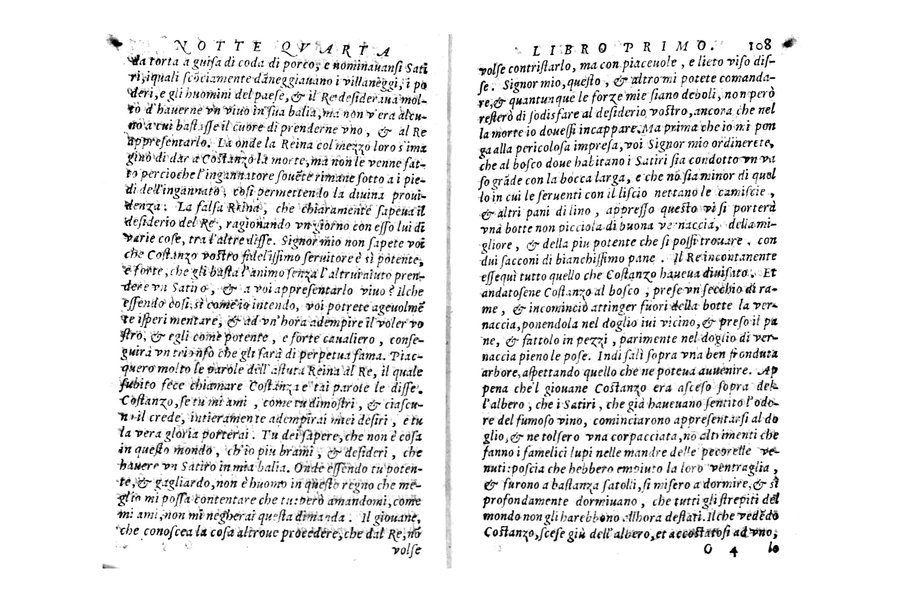 NOTTE QVARTA
da torta a guisa di coda di porco, e nominauansi Sati
ri, iquali sconciamente dãneggiauano i villaneggi, i po
deri, e gli huomini del paese, & il Re desideraua mol-
to d'hauerne vn viuo in sua balia, ma non v'era alcu-
no a cui bastasse il cuore di prenderne vno, & al Re
appresentarlo. La onde la Reina col mezzo loro s'ima
ginò di dar a Costanzo la morte, ma non le venne fat-
to percioche l'ingannatore souẽte rimane sotto a i pie-
di dell'ingannato, così permettendo la diuina proui-
denza. La falsa Reina, che chiaramente sapeua il
desiderio del Re, ragionando vn giorno con esso lui di
varie cose, tra l'altre disse. Signor mio non sapete voi
che Costanzo vostro fidelissimo seruitore è sì potente,
e forte, che gli basta l'animo senza l'altrui aiuto pren-
dere vn Satiro, & a voi appresentarlo viuo? Ilche
essendo così, sì come io intendo, voi potrete ageuolmẽ
te isperimentare, & ad vn'hora adempire il voler vo
stro, & egli come potente, e forte caualiero, conse-
guirà vn trionfo che gli sarà di perpetua fama. Piac-
quero molto le parole dell'astuta Reina al Re, il quale
subito fece chiamare Costanzo e tai parole le disse.
Costanzo, se tu mi ami, come tu dimostri, & ciascu-
n' il crede, intieramente adempirai miei desiri, e tu
la vera gloria porterai. Tu dei sapere, che non è cosa
in questo mondo, ch'io piu brami, & desideri, che
hauere vn Satiro in mia balia. Onde essendo tu poten-
te, & gagliardo, non è huomo in questo regno che me-
glio mi possa contentare che tu: però amandomi, come
mi ami, non mi negherai questa dimanda. Il giouane,
che conoscea la cosa altroue procedere, che dal Re, nõ
volse
LIBRO PRIMO. 108
volse contristarlo, ma con piaceuole, e lieto viso dis-
se. Signor mio, questo, & altro mi potete comanda-
re, & quantunque le forze mie siano deboli, non però
resterò di sodisfare al desiderio vostro, ancora che nel
la morte io douessi incappare. Ma prima che io mi pon
ga alla pericolosa impresa, voi Signor mio ordinerete,
che al bosco doue habitano i Satiri sia condotto vn va
so grãde con la bocca larga, e che nõ sia minor di quel
lo in cui le seruenti con il liscio nettano le camiscie,
& altri pani di lino, appresso questo vi si porterà
vna botte non picciola di buona vernaccia, della mi-
gliore, & della piu potente che si possi trouare, con
due sacconi di bianchissimo pane. Il Re incontanente
essequì tutto quello che Costanzo haueua diuisato. Et
andatosene Costanzo al bosco, prese vn secchio di ra-
me, & incominciò attinger fuori della botte la ver-
naccia, ponendola nel doglio iui vicino, & preso il pa
ne, & fattolo in pezzi, parimente nel doglio di ver-
naccia pieno le pose. Indi salì sopra vna ben fronduta
arbore, aspettando quello che ne poteua auuenire. Ap
pena che'l giouane Costanzo era asceso sopra del-
l'albero, che i Satiri, che già haueuano sentito l'odo-
re del fumoso vino, cominciarono appresentarsi al do
glio, & ne tolsero vna corpacciata, no altrimenti che
fanno i famelici lupi nelle mandre delle pecorelle ve-
nuti: poscia che hebbero empiuto la loro ventraglia,
& furono a bastanza satolli, si misero a dormire, & sì
profondamente dormiuano, che tutti gli strepiti del
mondo non gli harebbono allhora destati. Ilche vedẽdo
Costanzo, scese giù dell'albero, et accostatosi ad vno,
O 4 lo